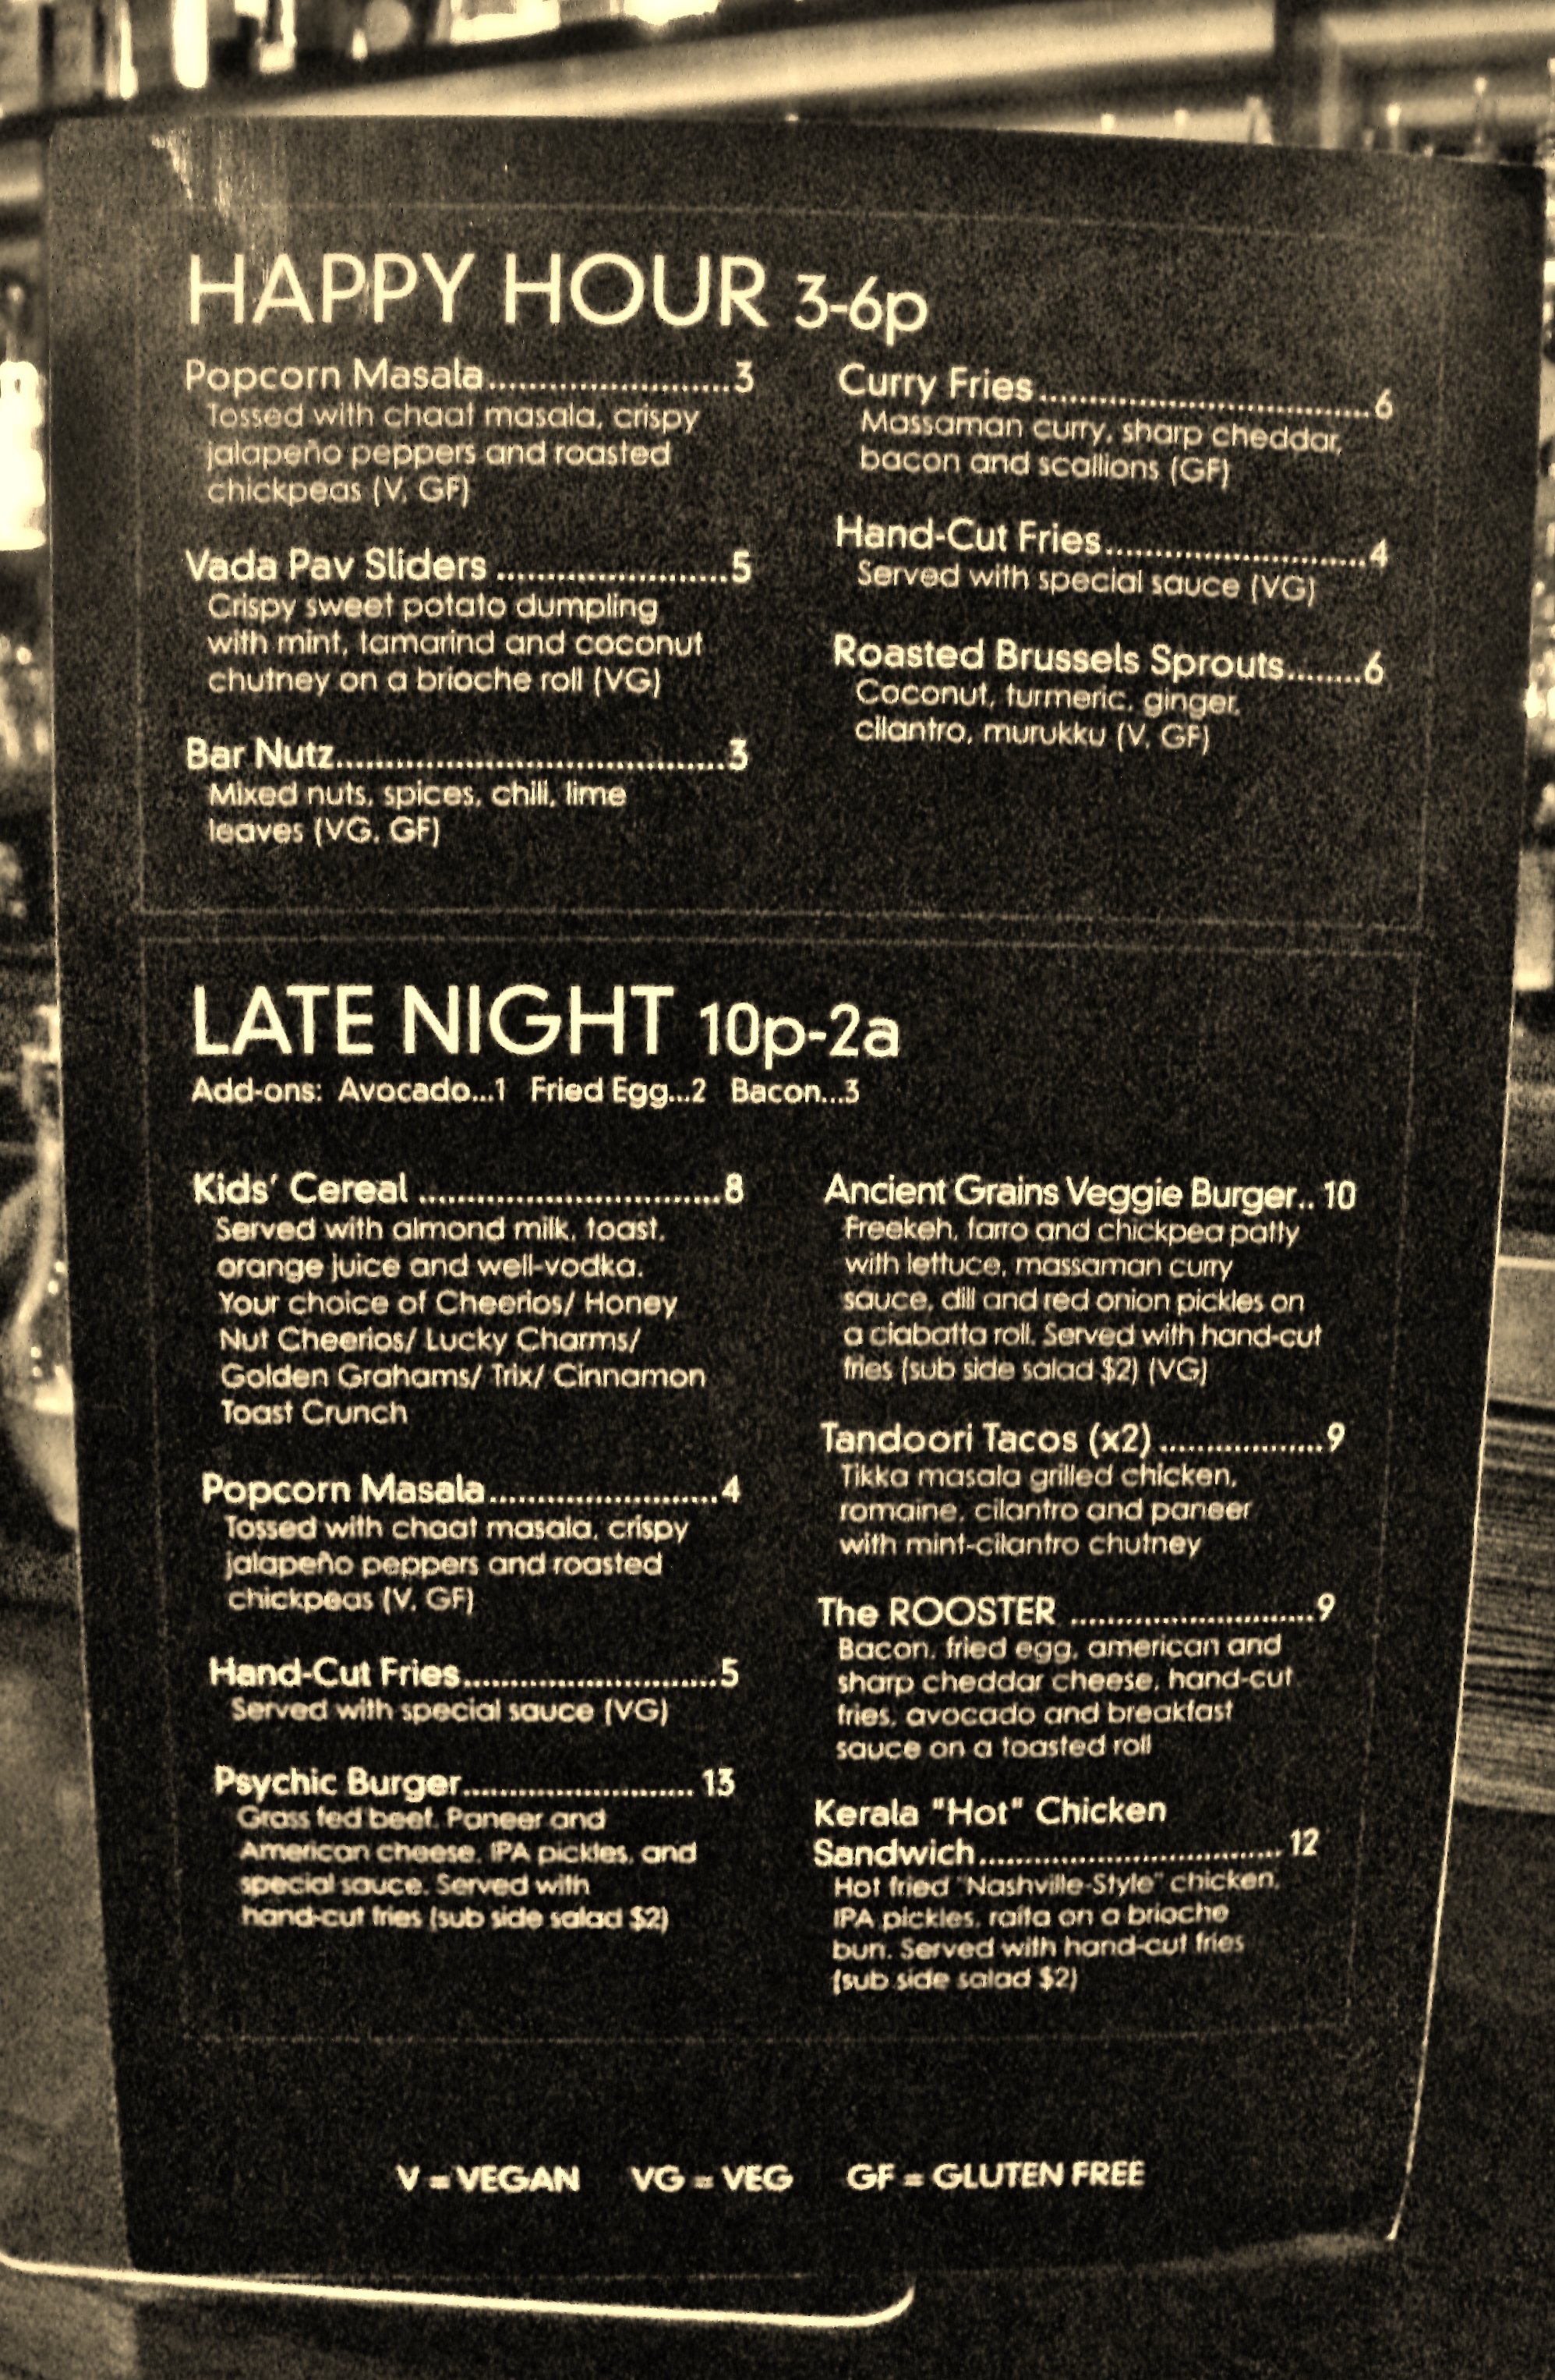 HAPPY HOUR 3-6p
Popcorn Masala.........................3
Tossed with chaat masala, crispy
jalapeño peppers and roasted
chickpeas (V, GF)
Vada Pav Sliders ........................5
Crispy sweet potato dumpling
with mint, tamarind and coconut
chutney on a brioche roll (VG)
Bar Nutz........................................3
Mixed nuts, spices, chili, lime
leaves (VG, GF)
Curry Fries..................................6
Massaman curry, sharp cheddar,
bacon and scallions (GF)
Hand-Cut Fries...........................4
Served with special sauce (VG)
Roasted Brussels Sprouts........6
Coconut, turmeric, ginger,
cilantro, murukku (V, GF)
LATE NIGHT 10p-2a
Add-ons: Avocado...1 Fried Egg...2 Bacon...3
Kids' Cereal ...............................8
Served with almond milk, toast,
orange juice and well-vodka.
Your choice of Cheerios/ Honey
Nut Cheerios/ Lucky Charms/
Golden Grahams/ Trix/ Cinnamon
Toast Crunch
Popcorn Masala........................4
Tossed with chaat masala, crispy
jalapeño peppers and roasted
chickpeas (V, GF)
Hand-Cut Fries..........................5
Served with special sauce (VG)
Psychic Burger........................ 13
Grass fed beef, Paneer and
American cheese, IPA pickles, and
special sauce. Served with
hand-cut fries (sub side salad $2)
Ancient Grains Veggie Burger.. 10
Freekeh, farro and chickpea patty
with lettuce, massaman curry
sauce, dill and red onion pickles on
a ciabatta roll. Served with hand-cut
fries (sub side salad $2) (VG)
Tandoori Tacos (x2) ..................9
Tikka masala grilled chicken,
romaine, cilantro and paneer
with mint-cilantro chutney
The ROOSTER ..........................9
Bacon, fried egg, american and
sharp cheddar cheese, hand-cut
fries, avocado and breakfast
sauce on a toasted roll
Kerala "Hot" Chicken
Sandwich................................ 12
Hot fried "Nashville-Style" chicken,
IPA pickles, raita on a brioche
bun. Served with hand-cut fries
(sub side salad $2)
V = VEGAN VG = VEG GF = GLUTEN FREE